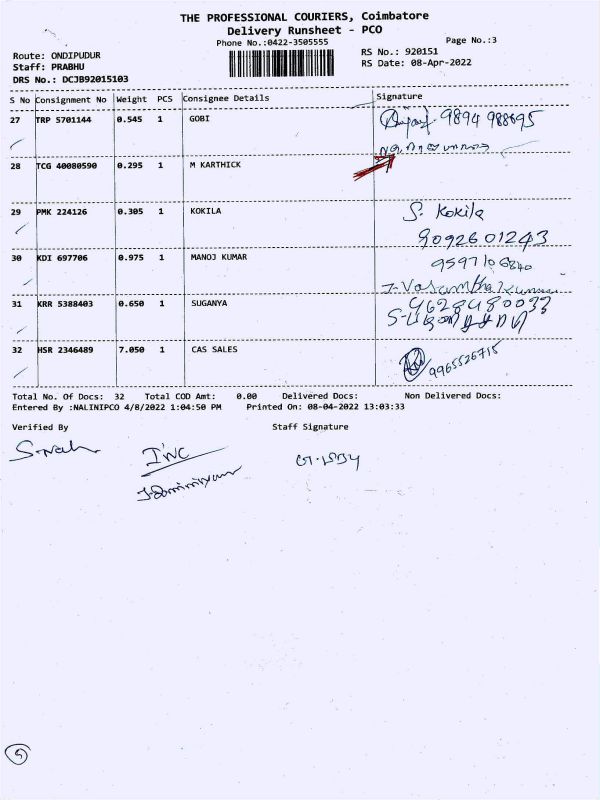 THE PROFESSIONAL COURIERS, Coimbatore
Delivery Runsheet - PCO
Phone No.:0422-3505555
Page No.:3
Route: ONDIPUDUR
RS No.: 920151
Staff: PRABHU
RS Date: 08-Apr-2022
DRS No.: DCJB92015103
S No Consignment No Weight PCS Consignee Details Signature
27 TRP 5701144 0.545 1 GOBI
9894 988695
28 TCG 40080590 0.295 1 M KARTHICK
29 PMK 224126 0.305 1 KOKILA S. Kokila
9092601243
30 KDI 697706 0.975 1 MANOJ KUMAR 9597106840
31 KRR 5388403 0.650 1 SUGANYA 9628480033
32 HSR 2346489 7.050 1 CAS SALES 9965526715
Total No. Of Docs: 32 Total COD Amt: 0.00 Delivered Docs: Non Delivered Docs:
Entered By :NALINIPCO 4/8/2022 1:04:50 PM Printed On: 08-04-2022 13:03:33
Verified By Staff Signature
INC
5